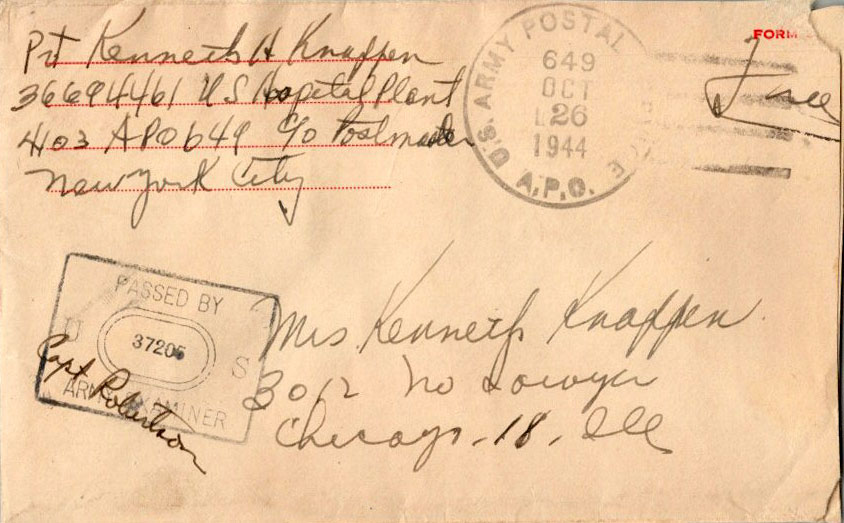 Pvt Kenneth H Knaffen
36694461 US Hospital Plant
4103 APO 649 c/o Postmaster
New York City
FORM
Free
U.S. ARMY POSTAL
649
OCT
26
1944
A.P.O.
PASSED BY
U S
37205
ARMY EXAMINER
Capt Robertson
Mrs Kenneth Knaffen
3012 No Sawyer
Chicago - 18 - Ill